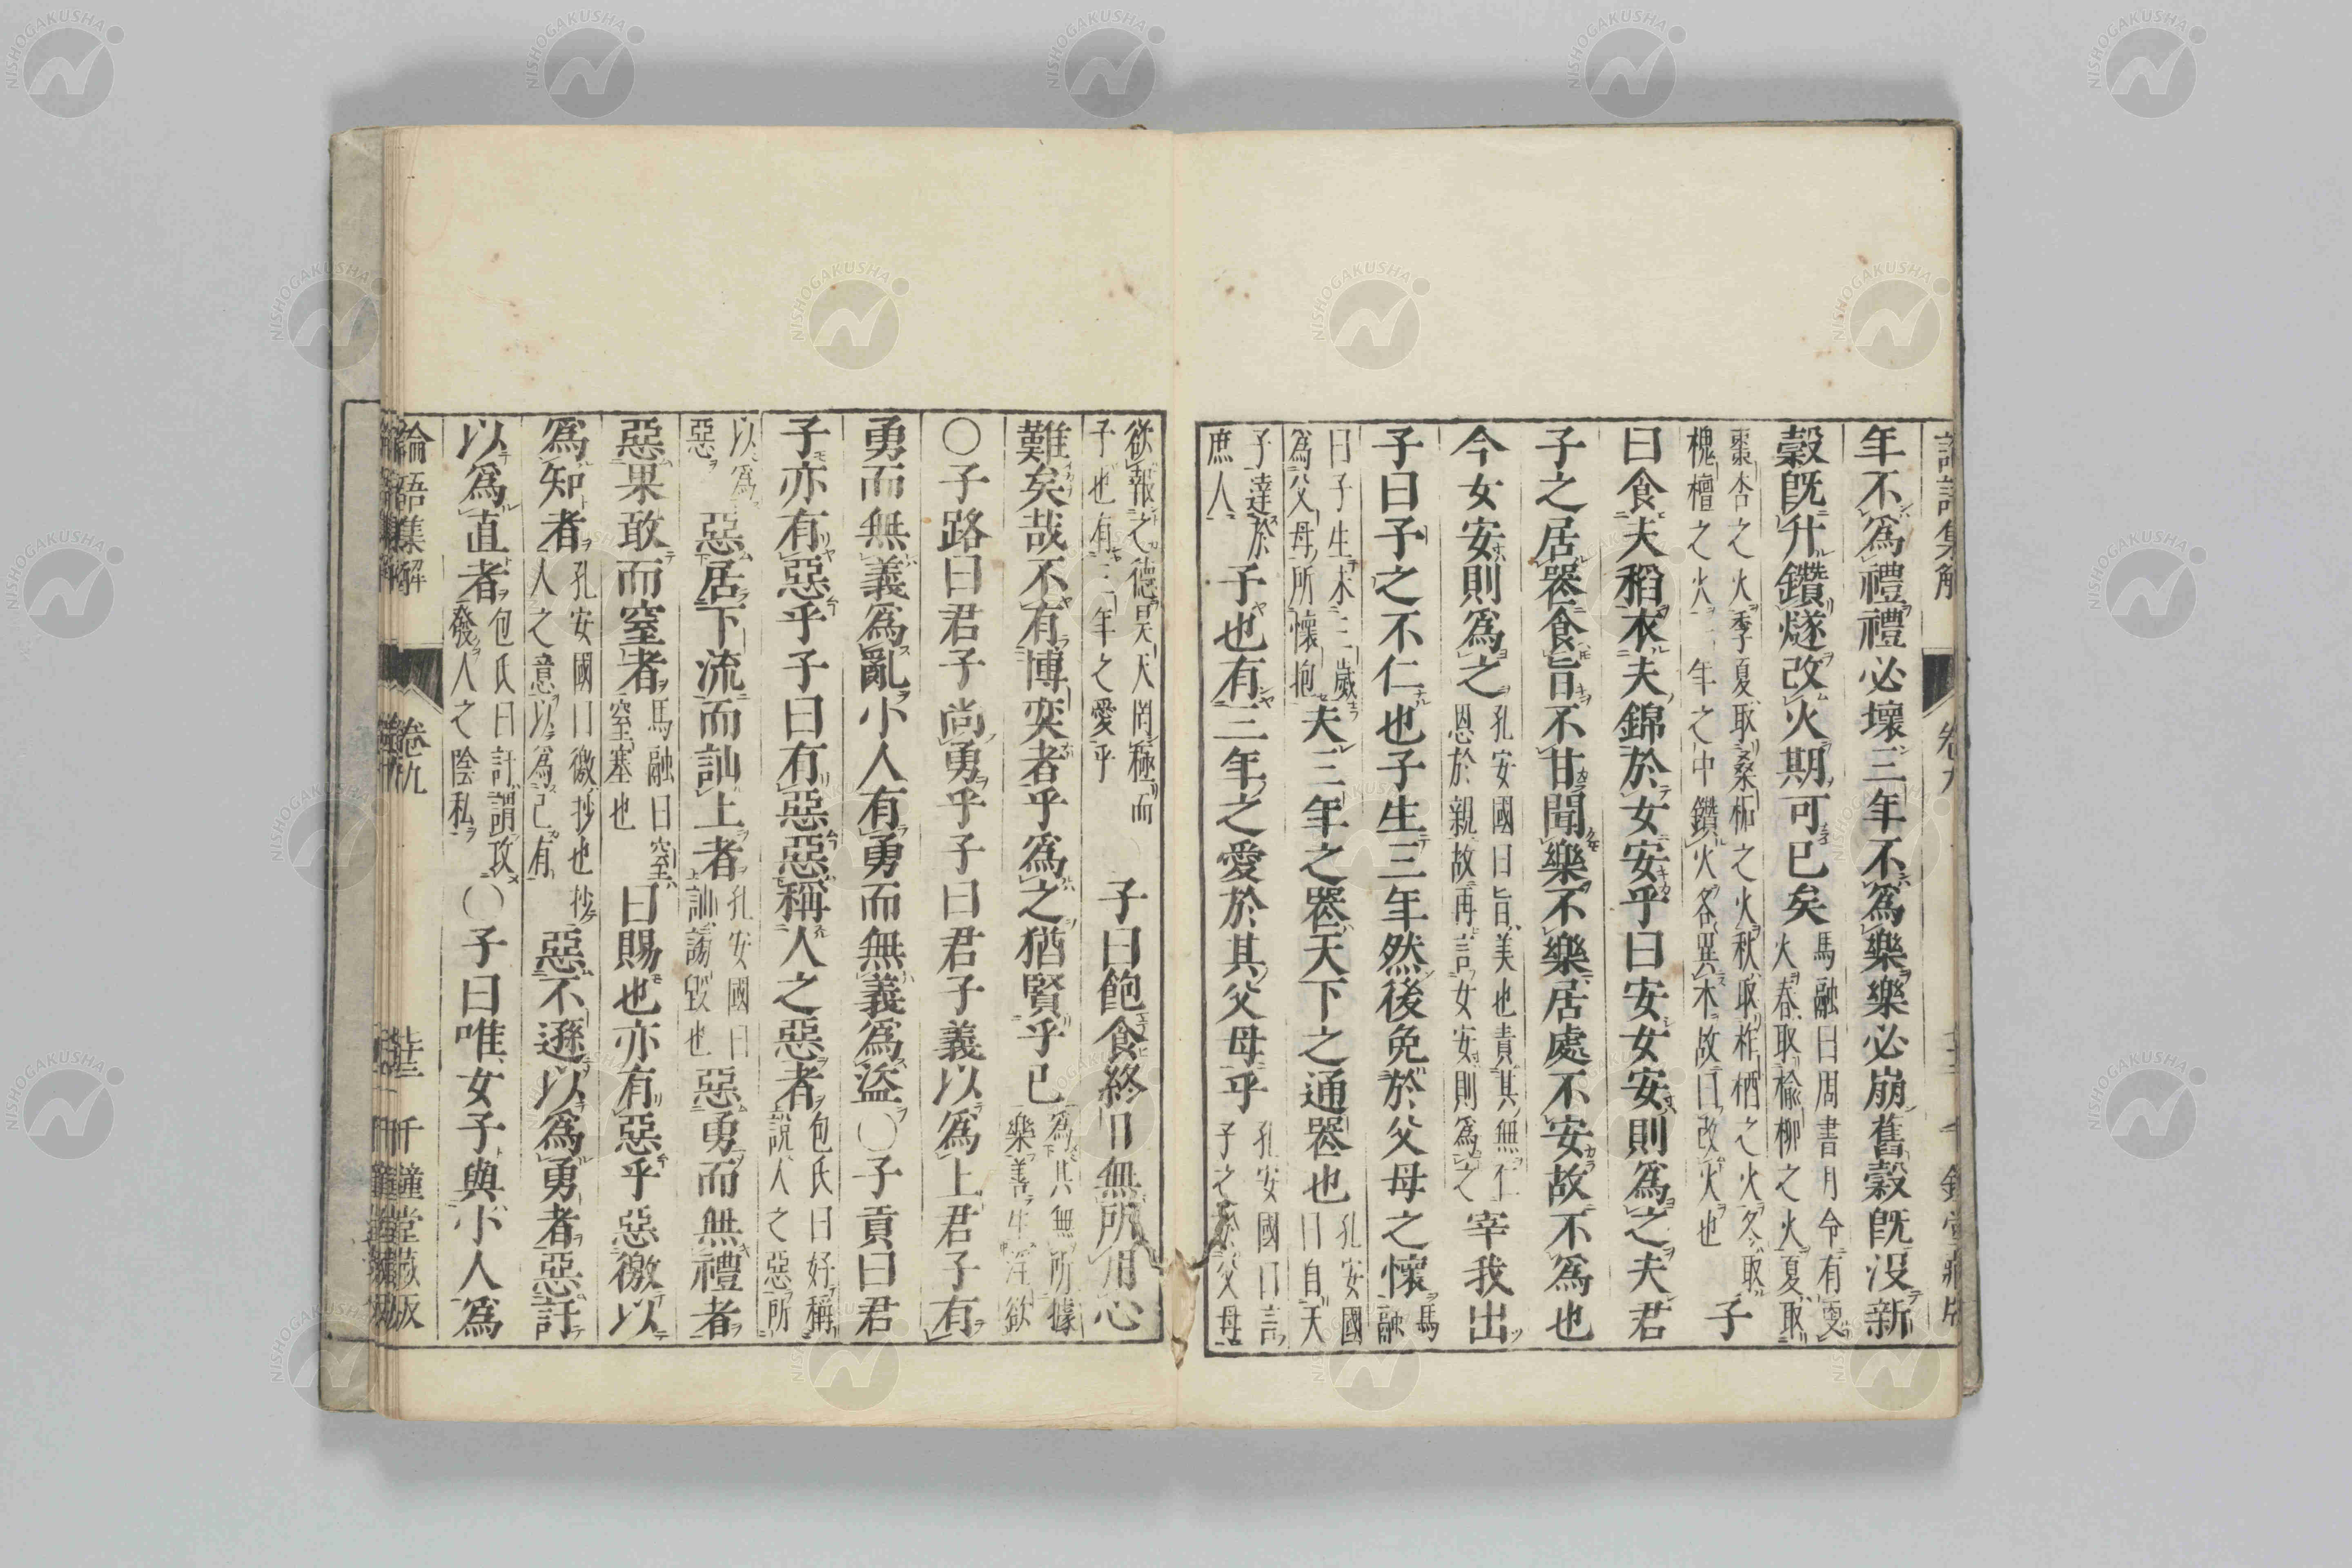 年不爲禮禮必壞三年不爲樂樂必崩舊穀既沒新
穀既升鑽燧改火期可已矣馬融曰周書月令有更火春取榆柳之火夏取
棗杏之火季夏取桑柘之火秋取柞楢之火冬取槐檀之火一年之中鑽火各異木故曰改火也子
曰食夫稻衣夫錦於女安乎曰安女安則爲之夫君
子之居喪食旨不甘聞樂不樂居處不安故不爲也
今女安則爲之孔安國曰旨美也責其無仁恩於親故再言女安則爲之宰我出
子曰予之不仁也子生三年然後免於父母之懷馬融
曰子生未三歲爲父母所懷抱夫三年之喪天下之通喪也孔安國曰自天
子達於庶人予也有三年之愛於其父母乎孔安國曰言子之於父母
欲報之德昊天罔極而予也有三年之愛乎子曰飽食終日無所用心
難矣哉不有博奕者乎爲之猶賢乎已爲其無所據樂善生淫欲
○子路曰君子尚勇乎子曰君子義以爲上君子有
勇而無義爲亂小人有勇而無義爲盜○子貢曰君
子亦有惡乎子曰有惡惡稱人之惡者包氏曰好稱說人之惡所
以爲惡惡居下流而訕上者孔安國曰訕謗毀也惡勇而無禮者
惡果敢而窒者馬融曰窒窒塞也曰賜也亦有惡乎惡徼以
爲知者孔安國曰徼抄也抄人之意以爲己有惡不遜以爲勇者惡訐
以爲直者包氏曰訐謂攻發人之陰私○子曰唯女子與小人爲
論語集解 卷九 千鍾堂藏板
NISHOGAKUSHA